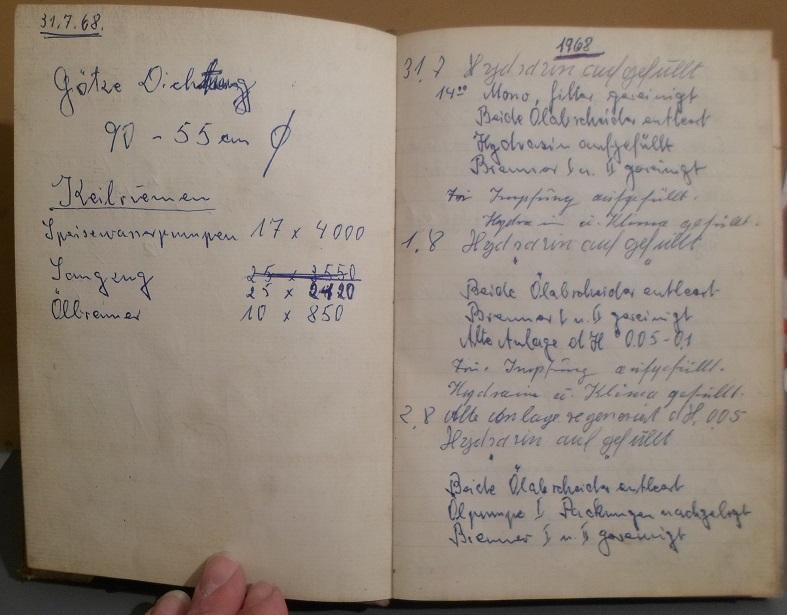 31.7.68.
Götze Dichtung
90 - 55 cm ϕ
Keilriemen
Speisewasserpumpen 17 x 4000
Saugzug 25 x 3550
25 x 2420
Ölbrenner 10 x 850
1968
31.7 Hydrazin aufgefüllt
14⁰⁰ Mono, filter gereinigt
Beide Ölabscheider entleert
Hydrasin aufgefüllt
Brenner I u. II gereinigt
Tri Impfung aufgefüllt.
Hydra in u. Klima gefüllt.
1.8 Hydrazin auf gefüllt
Beide Ölabscheider entleert
Brenner I u. II gereinigt
Alte Anlage d H° 0.05-0,1
Tri. Impfung aufgefüllt.
Hydrain u. Klima gefüllt.
2.8 Alte Anlage regeneriert dH. 005
Hydrazin auf gefüllt
Beide Ölabscheider entleert
Ölpumpe I Packungen nachgelegt
Brenner I u. II gereinigt